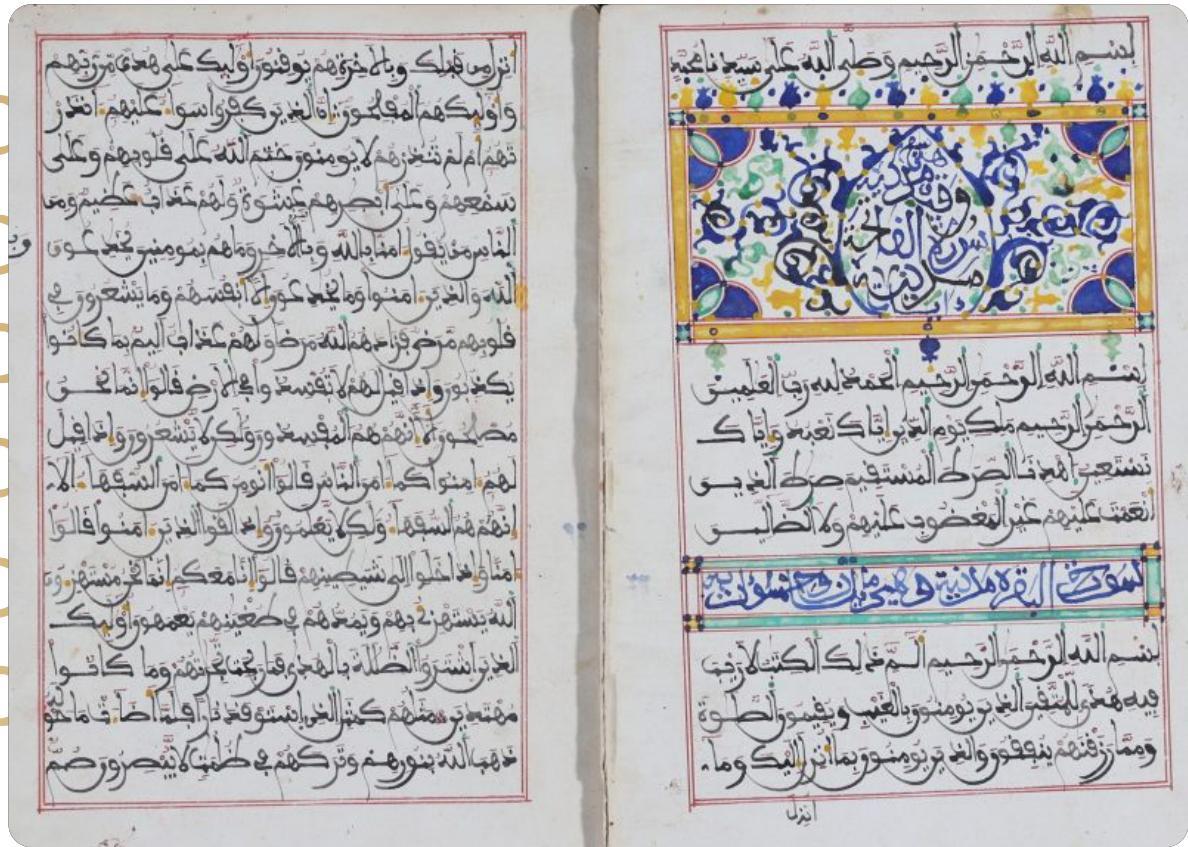 بسم الله الرحمن الرحيم وصلى الله على سيدنا محمد
سورة الفاتحة
بسم الله الرحمن الرحيم الحمد لله رب العلمين
الرحمن الرحيم ملك يوم الدين إياك نعبد وإياك
نستعين اهدنا الصرط المستقيم صرط الذين
أنعمت عليهم غير المغضوب عليهم ولا الضالين
سورة البقرة مدنية وهي
بسم الله الرحمن الرحيم ألم ذلك الكتب لا ريب
فيه هدى للمتقين الذين يومنون بالغيب ويقيمون الصلوة
ومما رزقنهم ينفقون والذين يومنون بما أنزل إليك وما
أنزل
أنزل من قبلك وبالاخرة هم يوقنون أوليك على هدى من ربهم
وأوليك هم المفلحون إن الذين كفروا سواء عليهم ءانذر
تهم أم لم تنذرهم لا يومنون ختم الله على قلوبهم وعلى
سمعهم وعلى أبصرهم غشوة ولهم عذاب عظيم ومن
الناس من يقول ءامنا بالله وباليوم الاخر وما هم بمومنين يخدعون
الله والذين ءامنوا وما يخدعون إلا أنفسهم وما يشعرون في
قلوبهم مرض فزادهم الله مرضا ولهم عذاب اليم بما كانوا
يكذبون وإذا قيل لهم لا تفسدوا في الارض قالوا إنما نحن
مصلحون ألا إنهم هم المفسدون ولكن لا يشعرون وإذا قيل
لهم ءامنوا كما ءامن الناس قالوا أنومن كما ءامن السفهاء ألا
إنهم هم السفهاء ولكن لا يعلمون وإذا لقوا الذين ءامنوا قالوا
ءامنا وإذا خلوا إلى شيطينهم قالوا إنا معكم إنما نحن مستهزءون
الله يستهزئ بهم ويمدهم في طغينهم يعمهون أوليك
الذين اشتروا الضللة بالهدى فما ربحت تجرتهم وما كانوا
مهتدين مثلهم كمثل الذي استوقد نارا فلما أضاءت ما حوله
ذهب الله بنورهم وتركهم في ظلمت لا يبصرون صم